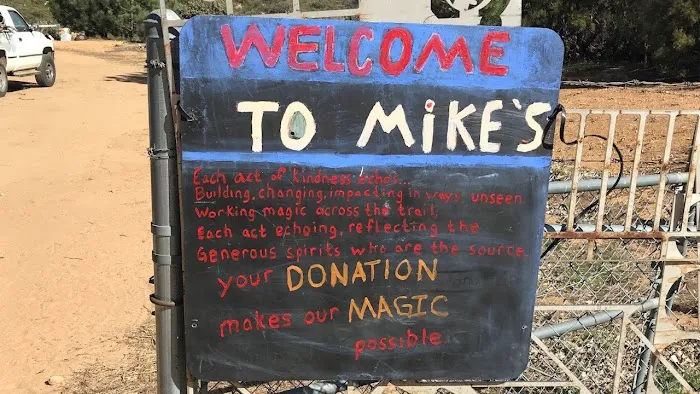 WELCOME
TO MiKE'S
Each act of kindness echos...
Building, changing, impacting in ways unseen
Working magic across the trail,
Each act echoing, reflecting the
Generous spirits who are the source.
your DONATION
makes our MAGIC
possible